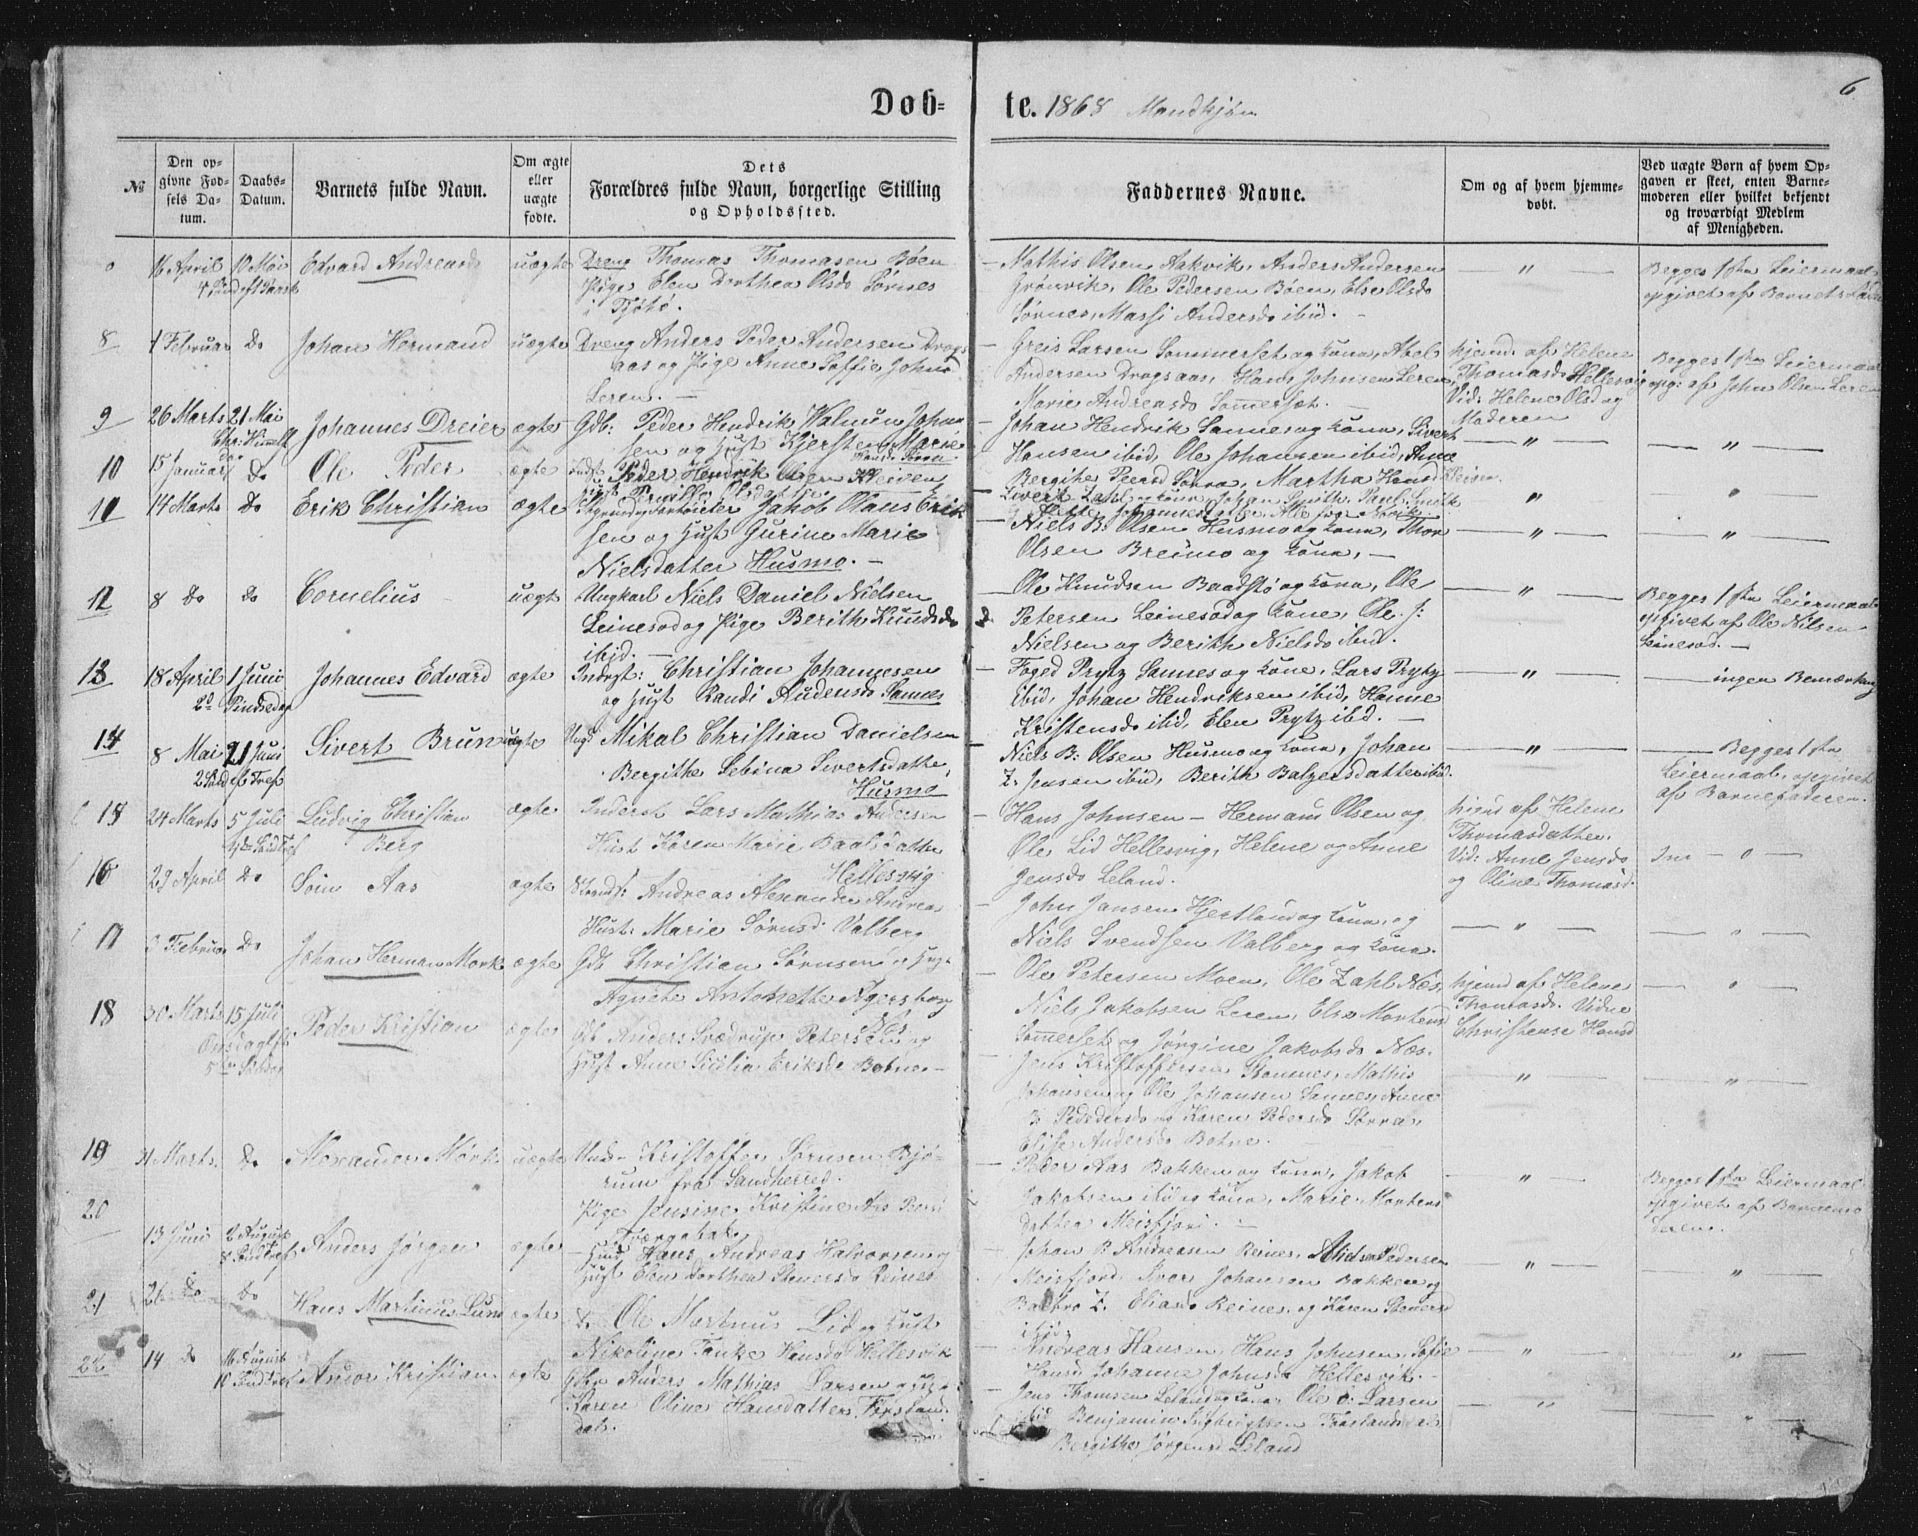 Døb-
te. 1868 Mandkjøn
6
№
Den op-
givne Fød-
sels Da-
tum.
Daabs-
Datum.
Barnets fulde Navn.
Om ægte
eller
uægte
fødte.
Dets
Forældres fulde Navn, borgerlige Stilling
og Opholdssted.
Faddernes Navne.
Om og af hvem hjemme-
døbt.
Ved uægte Børn af hvem Op-
gaven er skeet, enten Barne-
moderen eller hvilket bekjendt
og troværdigt Medlem
af Menigheden.
16 April 10 Mai Edvard Andreas uægte Dreng Thomas Thomasen Bøen
Pige Elen Dorthea Olsd. Sørnes
i Tjøtø.
Mathis Olsen Aakvik, Anders Andersen
Grønvik, Ole Pedersen Bøen, Else Olsd
Sørnes, Massi Andersd. ibid. —
— " —
Begges 1ste Leiermaal
opgivet af Barnets
8 1 Februar Do Johan Hermand uægte Dreng Anders Peder Andersen Drags-
aas og Pige Anne Soffie Johnsd
Leren. —
Greis Larsen Sommerset og Kone, Abel
Andersen Dragsaas, Hans Johnsen Leren,
Marie Andreasd. Sommerset. —
hjemd. af Helene
Thomasd. Hellesvig
Vid: Helene Olsd og
Moderen
Begges 1ste Leiermaal
opg: af John Olsen Leren
9 26 Marts 21 Mai Johannes Dreier ægte Gdb: Peder Hendrik Johan-
sen og Hust Kjersten Marie
Johan Hendrik Sannes og Kone, Sivert
Hansen ibid, Ole Johansen ibid, Anne
Bergithe Peersd , Martha Hansd
— " —
— " —
10 15 Januar Do Ole Peder ægte Indst. Peder Hendrik Olsen Kleiven
Hust Pernille Olsdatter
Sivert Zahl og Kone, Johan Smith, Paul Smith
— " —
— " —
11 14 Marts Do Erik Christian ægte Jakob Olaus Erik
sen og Hust Gurine Marie
Nielsdatter Husmo. —
Niels B: Olsen Husmo og Kone, Thor
Olsen Breimo og Kone, —
— " —
— " —
12 8 Do Do Cornelius uægte Ungkarl Niels Daniel Nilsen
Leinesod og Pige Berith Knudsd.
ibid. —
Ole Knudsen Baadstø og Kone, Ole
Petersen Leinesod og Kone, Ole J:
Nielsen og Berith Nielsd. ibid.
— " —
Begges 1ste Leiermaal
opgivet af Ole Nilsen
Leinesod. —
13 18 April 1 Juni Johannes Edvard ægte Inderst: Christian Johannesen
2d Pindsedag
og Hust Randi Audensd. Sannes
Foged Prytz Sannes og Kone, Lars Prytz
ibid, Johan Hendriksen ibid, Hanne
Kristensd. ibid, Elen Prytz ibd. —
— " —
— ingen Bemærkning
14 8 Mai 21 Juni Sivert Brun uægte Ungk Mikal Christian Danielsen
Bergithe Sebina Sivertsdatter,
Husmo
Niels B: Olsen Husmo og Kone, Johan
Z. Jensen ibid, Berith Balzersdatter ibid.
— " —
— Begges 1ste
Leiermaal, opgivet
af Barnefaderen.
15 24 Marts 5 Juli Ludvig Christian
Berg
ægte Inderst Lars Mathias Andersen
Hust Karen Marie Baalsdatter
Hellesvig
Hans Johnsen — Hermann Olsen og
Ole Lid Hellesvig, Helene og Anne
Jensd. Leland.
hjemd af Helene
Thomasdatter.
Vid: Anne Jensd.
og Oline Thomasd.
16 29 April Do Søin Aas ægte Andreas Alexander Andreas
Hust: Marie Sørnsd. Valberg
John Jansen Hjertland og Kone, og
Niels Svendsen Valberg og Kone.
— " —
— " —
17 3 Februar Do Johan Herman Mørk ægte Gdb Christian Sørnsen og Hust
Agnete Antonette Agersborg
Næs
Ole Petersen Moen, Ole Zahl Næs,
Niels Jakobsen Leren, Else Mortensd
Sommerset og Jørgine Jakobsd. Næs.
hjemd af Helene
Thomasd. Vidne
Christense Hansd
— " —
18 30 Marts 15 Juli Peder Kristian ægte Gdb Anders Sverdrup Petersen og
Hust Anne Sicilia Eriksd. Botne. —
Jens Kristoffersen Stamnes, Mathis
Johansen og Ole Johansen Sannes, Anne
Elise Andersd. Botne.
— " —
— " —
19 31 Marts Do Alexander Mørk uægte Ung- Kristoffer Sørnsen Bjø-
rum fra Sandherred.
Pige Jensine Kristine Aas
Peder Aas Bakken og Kone, Jakob
Jakobsen ibid og Kone, Marie Mortens
datter Meisfjord. —
— " —
Begges 1ste Leiermaal
opgivet af Barnemo
deren.
20 13 Juni 2 August Anders Jørgen ægte Hans Andreas Halvorsen og
Hust Elen Dorthea Stenersd. Reines
Johan P. Andreasen Reines, Nielsen Pedersen
Meisfjord, Iver Johansen Bakken og
Balbro Z. Eliasd. Reines, og Karen Stenersd
ibid.
— " —
— " —
21 21 Do Do Hans Martinus Lund ægte Do Ole Martinus Lid og Hust
Nikoline Tanke Hansd. Hellesvik
Andreas Hansen, Hans Johnsen, Sofie
Hansd Johanne Johnsd. Hellesvik. —
— " —
— " —
22 14 Do 16 August Andor Kristian ægte Anders Mathias Larsen og Hust
Karen Oline Hansdatter Forsland-
dal.
Jens Thomsen Leland og Kone, Ole O: Larsen
ibid Benjamin Sigbrigtsen Forslandsdal
Bergithe Jørgensd Leland
— " —
— " —